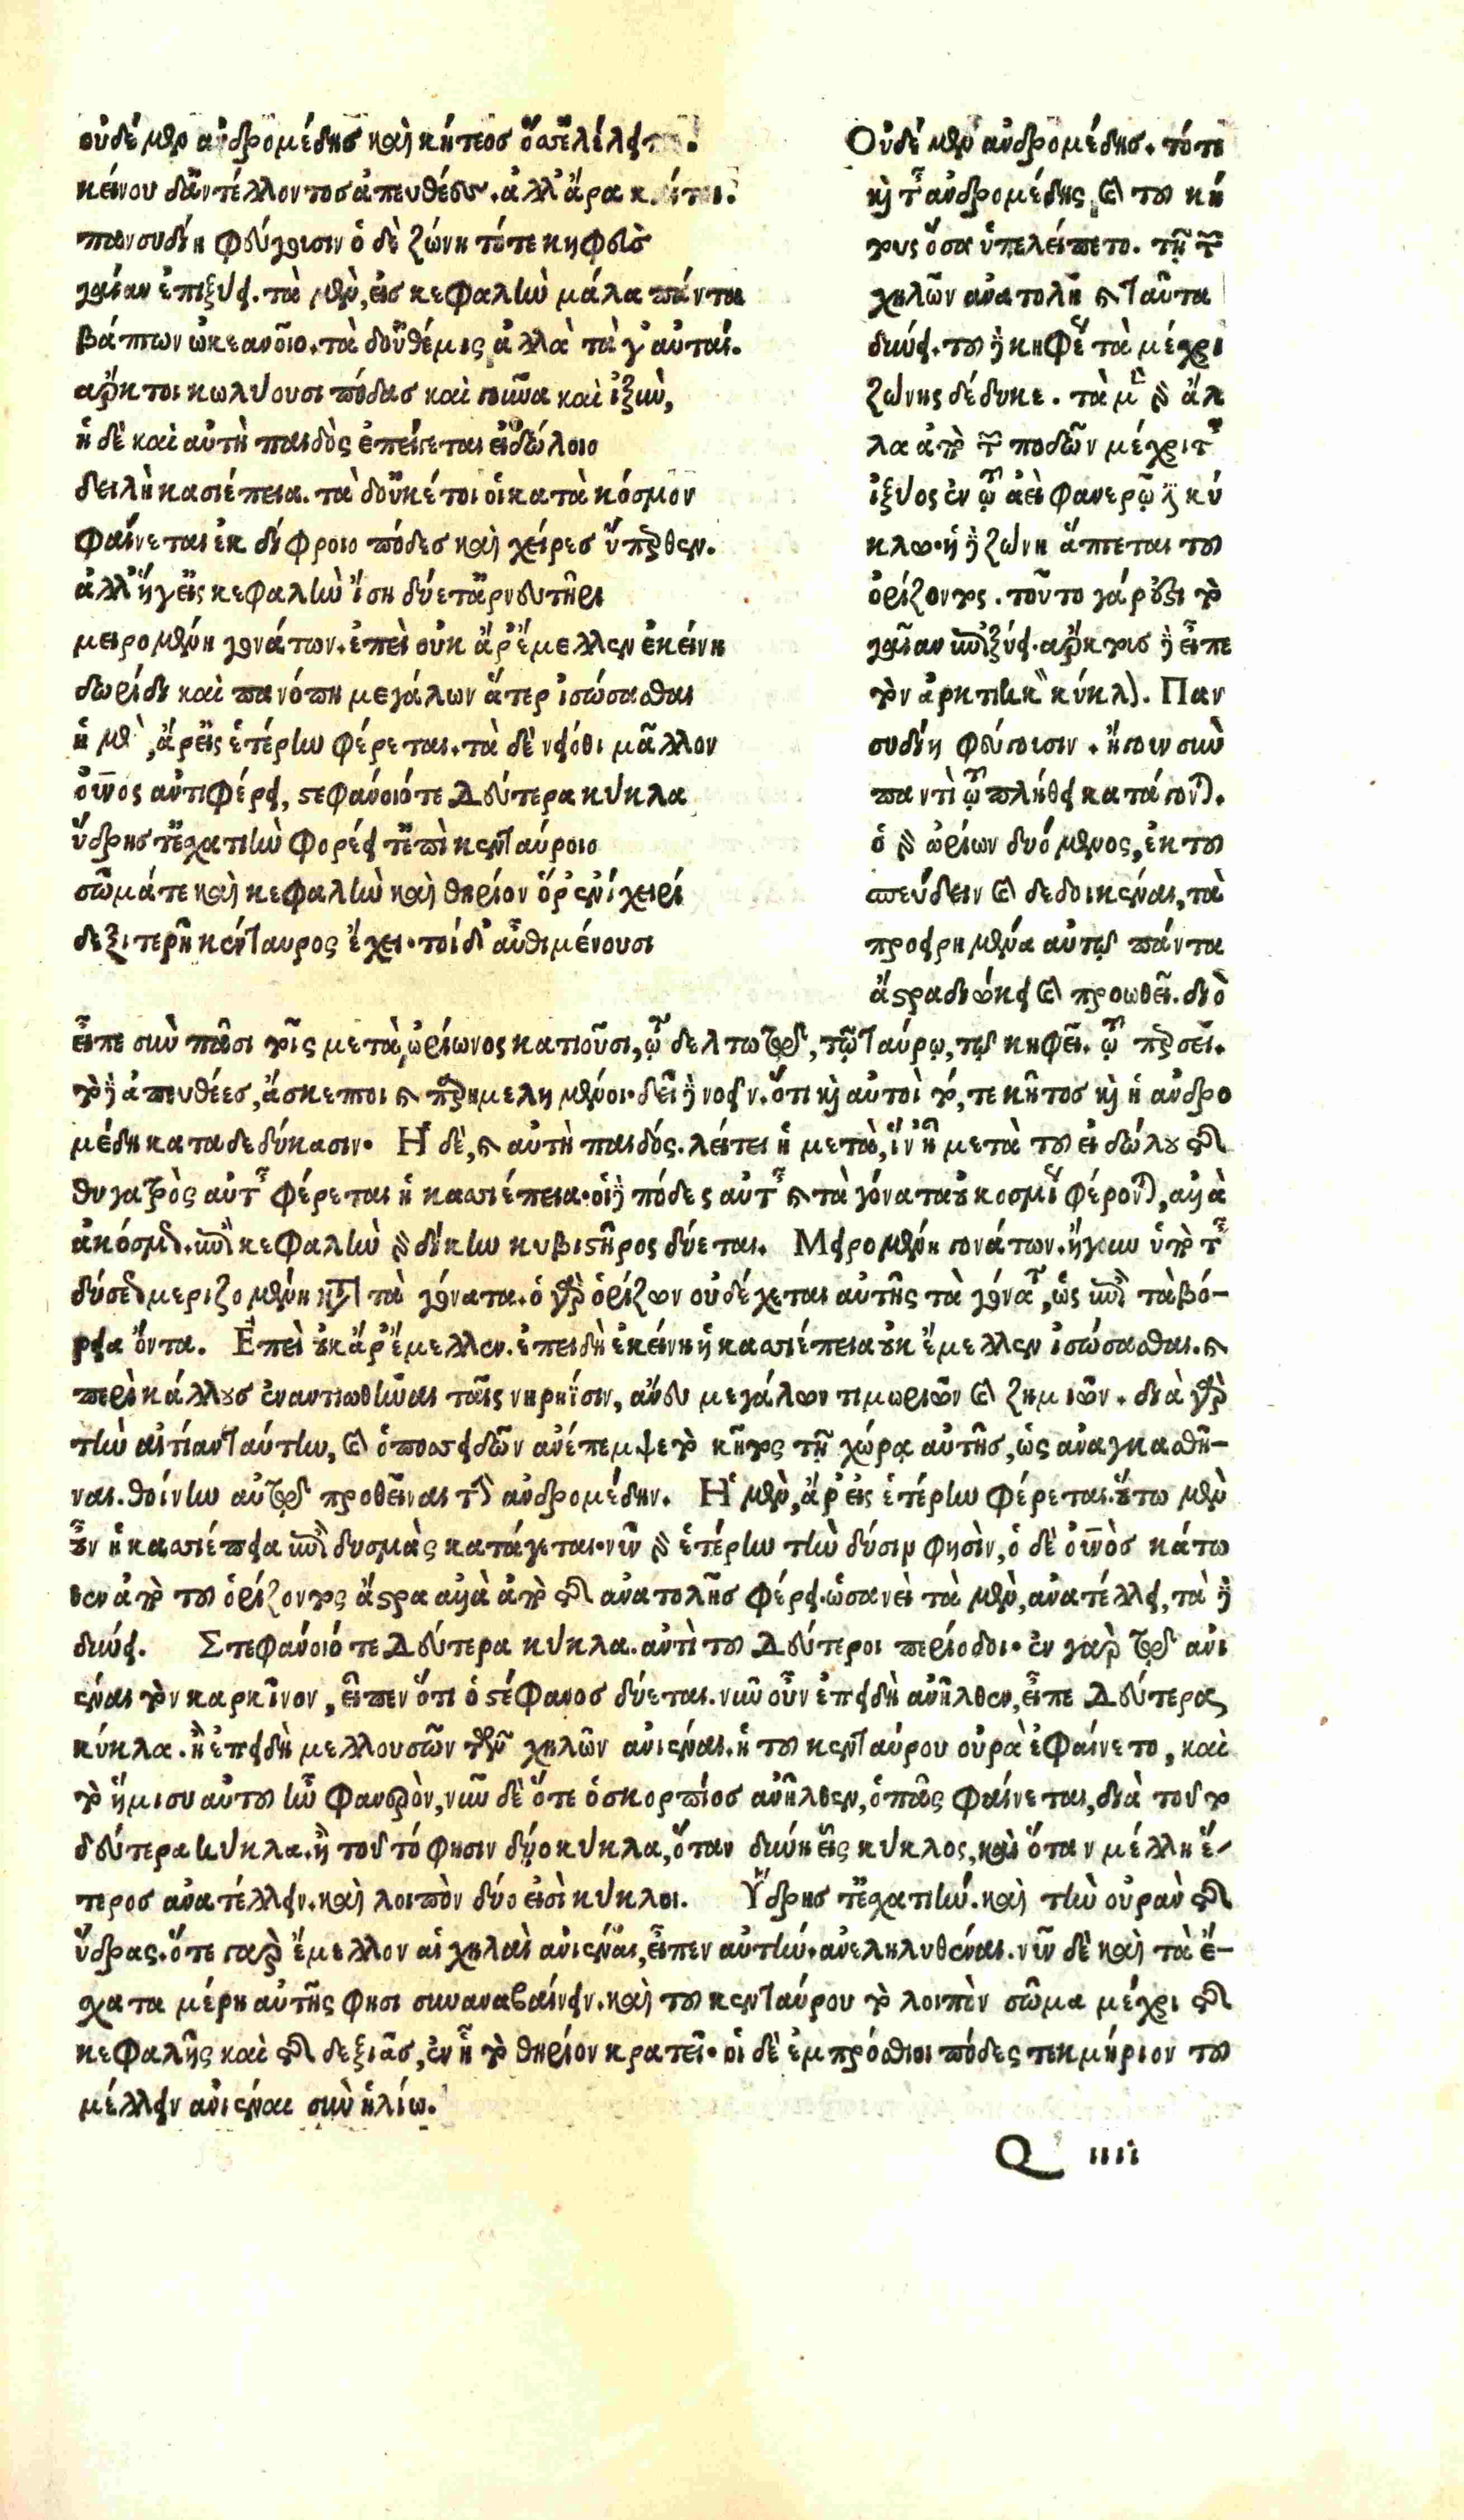 οὐδὲ μὲν ἀνδρομέδης καὶ κήτεος ὅσσ' ἐλέλειπτο.
κείνου δ' ἀντέλλοντος ἀπευθέες. ἀλλ' ἄρα καί τοι.
πανσυδίῃ φεύγουσιν ὁ δὲ ζώνῃ τότε κηφεὺς
γαῖαν ἐπιξύει. τὰ μὲν, εἰς κεφαλὴν μάλα πάντα
βάπτων ὠκεανοῖο. τὰ δ' οὐ θέμις ἀλλὰ τὰ γ' αὐταί.
ἄρκτοι κωλύουσι πόδας καὶ γοῦνα καὶ ἰξὺν,
ἡ δὲ καὶ αὐτὴ παιδὸς ἐπείγεται εἰδώλοιο
δειλὴ κασιέπεια. τὰ δ' οὐκέτι οἱ κατὰ κόσμον
φαίνεται ἐκ δίφροιο πόδες καὶ χεῖρες ὕπερθεν.
ἀλλ' ἥγ' εἰς κεφαλὴν ἴση δύετ' ἀρνευτῆρι
μειρομένη γονάτων. ἐπεὶ οὐκ ἄρ' ἔμελλεν ἐκείνη
δωρίδι καὶ πανόπῃ μεγάλων ἄτερ ἰσώσασθαι
ἡ μὲν, ἄρ' εἰς ἑτέρην φέρεται. τὰ δὲ νειόθι μᾶλλον
οὐρανὸς ἀντιφέρει, στεφάνοιό τε δεύτερα κύκλα
ὕδρης τ' ἐσχατιὴν φορέει τ' ἐπὶ κενταύροιο
σῶμά τε καὶ κεφαλὴν καὶ θηρίον ὅρ' ἐνὶ χειρί
δεξιτερῇ κένταυρος ἔχει. τοὶ δ' αὖθι μένουσι
Οὐδὲ μὲν ἀνδρομέδης. τότε
καὶ τῆς ἀνδρομέδης, καὶ τοῦ κή
τους ὅσα ὑπελείπετο. τῇ τῶν
χηλῶν ἀνατολῇ καὶ ταῦτα
δύνει. τοῦ δὲ κηφέως τὰ μέχρι
ζώνης δέδυκε. τὰ μέντοι δὲ ἄλ
λα ἀπὸ τῶν ποδῶν μέχρι τῆς
ἰξύος ἐν τῷ ἀεὶ φανερῷ ἐστι κύ
κλῳ. ἡ δὲ ζώνη ἅπτεται τοῦ
ὁρίζοντος. τοῦτο γάρ ἐστι τὸ
γαῖαν ἐπιξύει. ἄρκτους δὲ εἶπε
τὸν ἀρκτικὸν κύκλον. Παν
συδίῃ φεύγουσιν. ἤγουν σὺν
παντὶ τῷ πλήθει κατάγονται.
ὁ δὲ ὠρίων δυόμενος, ἐκ τοῦ
σπεύδειν καὶ δεδοικέναι, τὰ
προειρημένα αὐτῷ πάντα
ἄστρα διώκει καὶ προωθεῖ. διὸ
εἶπε σὺν πᾶσι τοῖς μετὰ, ὠρίωνος κατιοῦσι, τῷ δελτωτῷ, τῷ ταύρῳ, τῷ κηφεῖ. τῷ περσεῖ.
τὸ δὲ ἀπευθέες, ἄσκεπτοι καὶ παρημελημένοι. δεῖ δὲ νοεῖν. ὅτι καὶ αὐτοὶ τό, τε κῆτος καὶ ἡ ἀνδρο
μέδη καταδεδύκασιν. Ἡ δὲ, καὶ αὐτὴ παιδός. λείπει ἡ μετὰ, ἵν' ᾖ μετὰ τοῦ εἰδώλου τῆς
θυγατρὸς αὐτῆς φέρεται ἡ κασσιέπεια. οἱ δὲ πόδες αὐτῆς καὶ τὰ γόνατα οὐ κοσμίως φέρονται, ἀλλὰ
ἀκόσμως. ἐπὶ κεφαλὴν δὲ δίκην κυβιστῆρος δύεται. Μειρομένη γονάτων. ἤγουν ὑπὸ τῆς
δύσεως μεριζομένη κατὰ τὰ γόνατα. ὁ γὰρ ὁρίζων οὐ δέχεται αὐτῆς τὰ γόνατα, ὡς ἐπὶ τὰ βό-
ρεια ὄντα. Ἐπεὶ οὐκ ἄρ' ἔμελλεν. ἐπειδὴ ἐκείνη ἡ κασσιέπεια οὐκ ἔμελλεν ἰσώσασθαι. καὶ
περὶ κάλλους ἐναντιωθῆναι ταῖς νηρηΐσιν, ἄνευ μεγάλων τιμωριῶν καὶ ζημιῶν. διὰ γὰρ
τὴν αἰτίαν ταύτην, καὶ ὁ ποσειδῶν ἀνέπεμψε τὸ κῆτος τῇ χώρᾳ αὐτῆς, ὡς ἀναγκασθῆ-
ναι. θοίνην αὐτῷ προθεῖναι τὴν ἀνδρομέδην. Ἡ μὲν, ἄρ' εἰς ἑτέρην φέρεται. οὕτω μὲν
οὖν ἡ κασσιέπεια ἐπὶ δυσμὰς κατάγεται. νῦν δὲ ἑτέρην τὴν δύσιν φησὶν, ὁ δὲ οὐρανὸς κάτω
θεν ἀπὸ τοῦ ὁρίζοντος ἄστρα ἀλλὰ ἀπὸ τῆς ἀνατολῆς φέρει. ὡσανεὶ τὰ μὲν, ἀνατέλλει, τὰ δὲ
δύνει. Στεφάνοιό τε δεύτερα κύκλα. ἀντὶ τοῦ δεύτεροι περίοδοι. ἐν γὰρ τῷ ἀνι
έναι τὸν καρκῖνον, εἶπεν ὅτι ὁ στέφανος δύεται. νῦν οὖν ἐπειδὴ ἀνῆλθεν, εἶπε δεύτερα,
κύκλα. ἢ ἐπειδὴ μελλουσῶν τῶν χηλῶν ἀνιέναι. ἡ τοῦ κενταύρου οὐρὰ ἐφαίνετο, καὶ
τὸ ἥμισυ αὐτοῦ ἦν φανερὸν, νῦν δὲ ὅτε ὁ σκορπίος ἀνῆλθεν, ὁ πᾶς φαίνεται, διὰ τοῦτο
δεύτερα κύκλα. ἢ τοῦτό φησιν δύο κύκλα, ὅταν δύνῃ εἷς κύκλος, καὶ ὅταν μέλλῃ ἕ-
τερος ἀνατέλλειν. καὶ λοιπὸν δύο εἰσὶ κύκλοι. Ὕδρης τ' ἐσχατιήν. καὶ τὴν οὐρὰν τῆς
ὕδρας. ὅτε γὰρ ἔμελλον αἱ χηλαὶ ἀνιέναι, εἶπεν αὐτήν. ἀνεληλυθέναι. νῦν δὲ καὶ τὰ ἔ-
σχατα μέρη αὐτῆς φησι συναναβαίνειν. καὶ τοῦ κενταύρου τὸ λοιπὸν σῶμα μέχρι τῆς
κεφαλῆς καὶ τῆς δεξιᾶς, ἐν ᾗ τὸ θηρίον κρατεῖ. οἱ δὲ ἐμπρόσθιοι πόδες τεκμήριον τοῦ
μέλλειν ἀνιέναι σὺν ἡλίῳ.
Q iiii